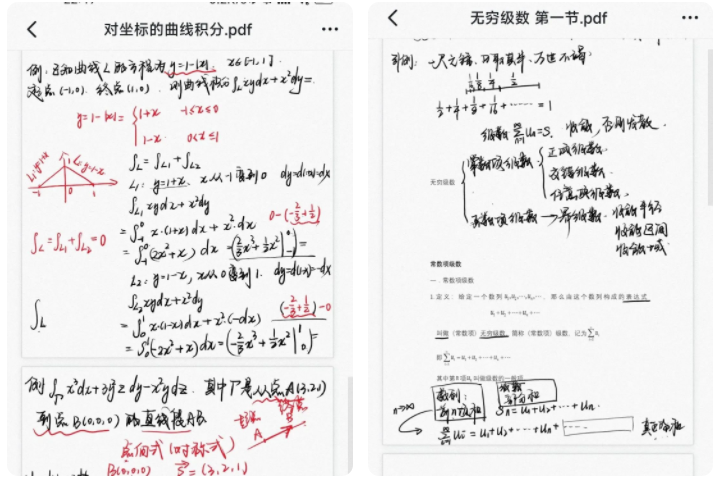 对坐标的曲线积分.pdf
例. 已知曲线L的方程为 y=1-|x|. x∈[-1,1].
起点(-1,0). 终点(1,0). 则曲线积分∫L xydx+x²dy=
y=1-|x|={1+x -1≤x≤0
1-x 0<x≤1
L1: y=1+x L2: y=1-x
-1 0 1
∫L=∫L1+∫L2
L1: y=1+x. x从-1变到0 dy=d(1+x)=dx
∫L1 xydx+x²dy
=∫-1^0 x·(1+x)dx+x²·dx
0-(-2/3+1/2)
∫L=∫L1+∫L2=0
=∫-1^0(2x²+x)dx=(2/3x³+1/2x²|-1^0)=
L2: y=1-x, x从0变到1. dy=d(1-x)=-dx
∫L2 xydx+x²dy
(-2/3+1/2)-0
∫L
=∫0^1 x·(1-x)dx+x²·(-dx)
=∫0^1(-2x²+x)dx=(-2/3x³+1/2x²|0^1)=
例 ∫Γ x³dx+3y²zdy-x²ydz. 其中Γ是从点A(3,2,1)
到点B(0,0,0)的直线段AB.
起点 A 终点 B
点向式(对称式)
B(0,0,0) S=(3,2,1)
无穷级数 第一节.pdf
引例: 一尺之锤, 日取其半, 万世不竭.
1/16 1/8 1/4 1/2
1/2+1/4+1/8+1/16+······=1
级数 ∑un=S. 收敛, 否则发散.
无穷级数
常数项级数
正项级数
交错级数
任意项级数
函数项级数→幂级数.
收敛半径
收敛区间
收敛域
常数项级数
一. 常数项级数
1.定义: 给定一个数列 u1,u2,···un,···. 那么由这个数列构成的表达式
u1+u2+···+un+···
叫做 (常数项) 无穷级数, 简称 (常数项) 级数, 记为∑un
即 ∑un=u1+u2+···+un+···
其中第n项un叫做级数的一般项
数列:
前n项和
级数
部分和
n→∞
Sn=u1+u2+···+un
∑ui=u1+u2+···+un+